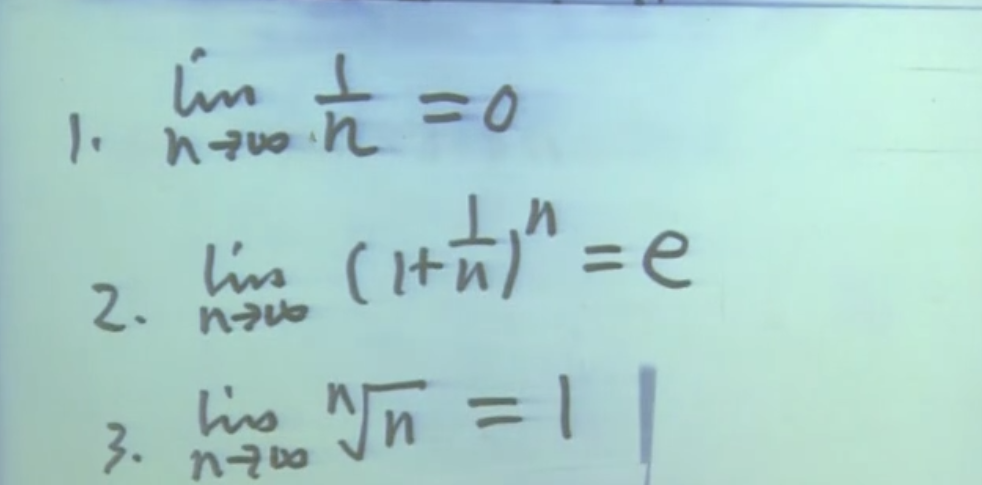 1. lim n→∞ 1/n = 0
2. lim n→∞ (1+1/n)^n = e
3. lim n→∞ ⁿ√n = 1